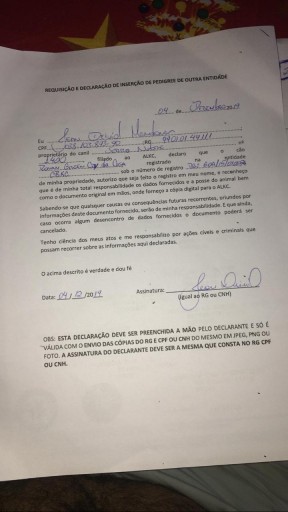 REQUISIÇÃO E DECLARAÇÃO DE INSERÇÃO DE PEDIGREE DE OUTRA ENTIDADE
09 de Dezembro
Eu David
CPF RG 4901014911 , ,
proprietário do canil , nº
filiado ao ALKC, declaro que o cão
registrado na entidade
CBKC , sob o número de registro
de minha propriedade, autorizo que seja feito o registro em meu nome, e reconheço
que é de minha total responsabilidade os dados fornecidos e a posse do animal bem
como o documento original em mãos, onde forneço a cópia digital para o ALKC.
Sabendo-se que quaisquer causas ou consequências futuras recorrentes, oriundos por
informações deste documento fornecido, serão de minha responsabilidade. E que ainda,
caso ocorra algum desencontro de dados fornecidos o documento poderá ser
cancelado.
Tenho ciência dos meus atos e me responsabilizo por ações cíveis e criminais que
possam recorrer sobre as informações aqui declaradas.
O acima descrito é verdade e dou fé
Data: 09/12/2019 Assinatura: David
(Igual ao RG ou CNH)
OBS: ESTA DECLARAÇÃO DEVE SER PREENCHIDA A MÃO PELO DECLARANTE E SÓ É
VÁLIDA COM O ENVIO DAS CÓPIAS DO RG E CPF OU CNH DO MESMO EM JPEG, PNG OU
FOTO. A ASSINATURA DO DECLARANTE DEVE SER A MESMA QUE CONSTA NO RG CPF
OU CNH.